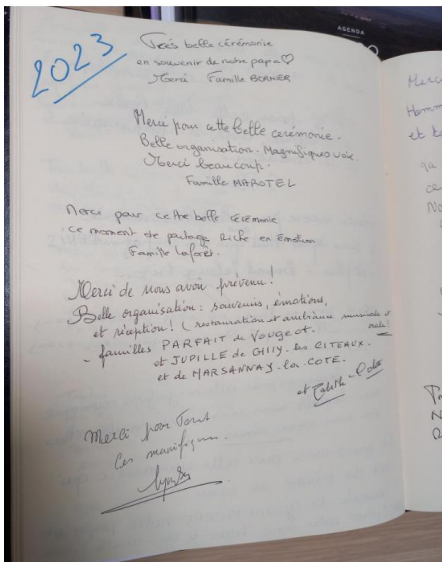 AGENDA
2023
Très belle cérémonie
en souvenir de notre papa ♡
Merci Famille BERNER
Merci pour cette belle cérémonie.
Belle organisation. Magnifiques voix.
Merci beaucoup.
Famille MAROTEL
Merci pour cette belle cérémonie
ce moment de partage riche en émotion
Famille Laforêt.
Merci de nous avoir prévenu!
Belle organisation: souvenirs, émotions,
et réception! (restauration et ambiance musicale et orale!
- familles PARFAIT de Vougeot.
et JUPILLE de GILLY-les CITEAUX.
et de MARSANNAY-la COTE.
et
Merci pour Tout
Merci
Homm
et